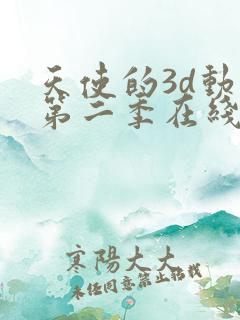 天使的3d動
第二季在綫
寒陽大大
未任同意禁止轉載